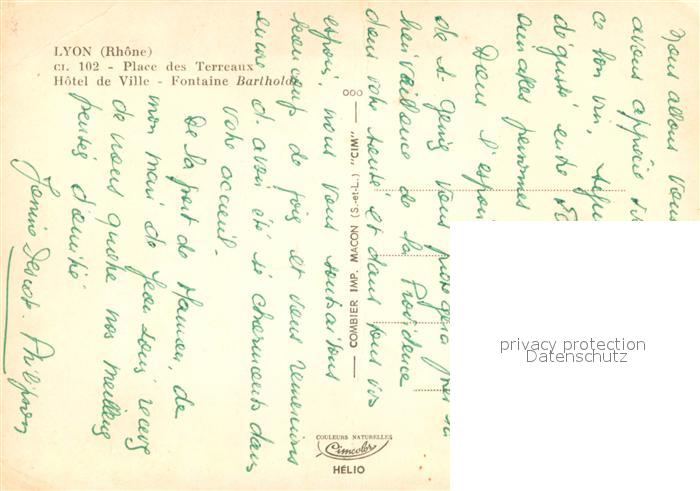 LYON (Rhône)
CI. 102 - Place des Terreaux
Hôtel de Ville - Fontaine Bartholdi
COMBIER IMP. MACON (S.-et-L.) "CIM"
COULEURS NATURELLES
Cimcolor
HÉLIO
privacy protection
Datenschutz
Nous allons vous
avons apprécié
ce bon vin,
dégusté entre
aimables personnes
Dans l'espoir
de St Genis vous protégera
bienveillance de la Providence
dans votre santé et dans tous vos
espoirs, nous vous souhaitons
beaucoup de joies et vous remercions
encore d'avoir été si charmants dans
votre accueil.
De la part de Maman, de
mon mari de Jean Louis recevez
de nous quatre nos meilleures
pensées d'amitié